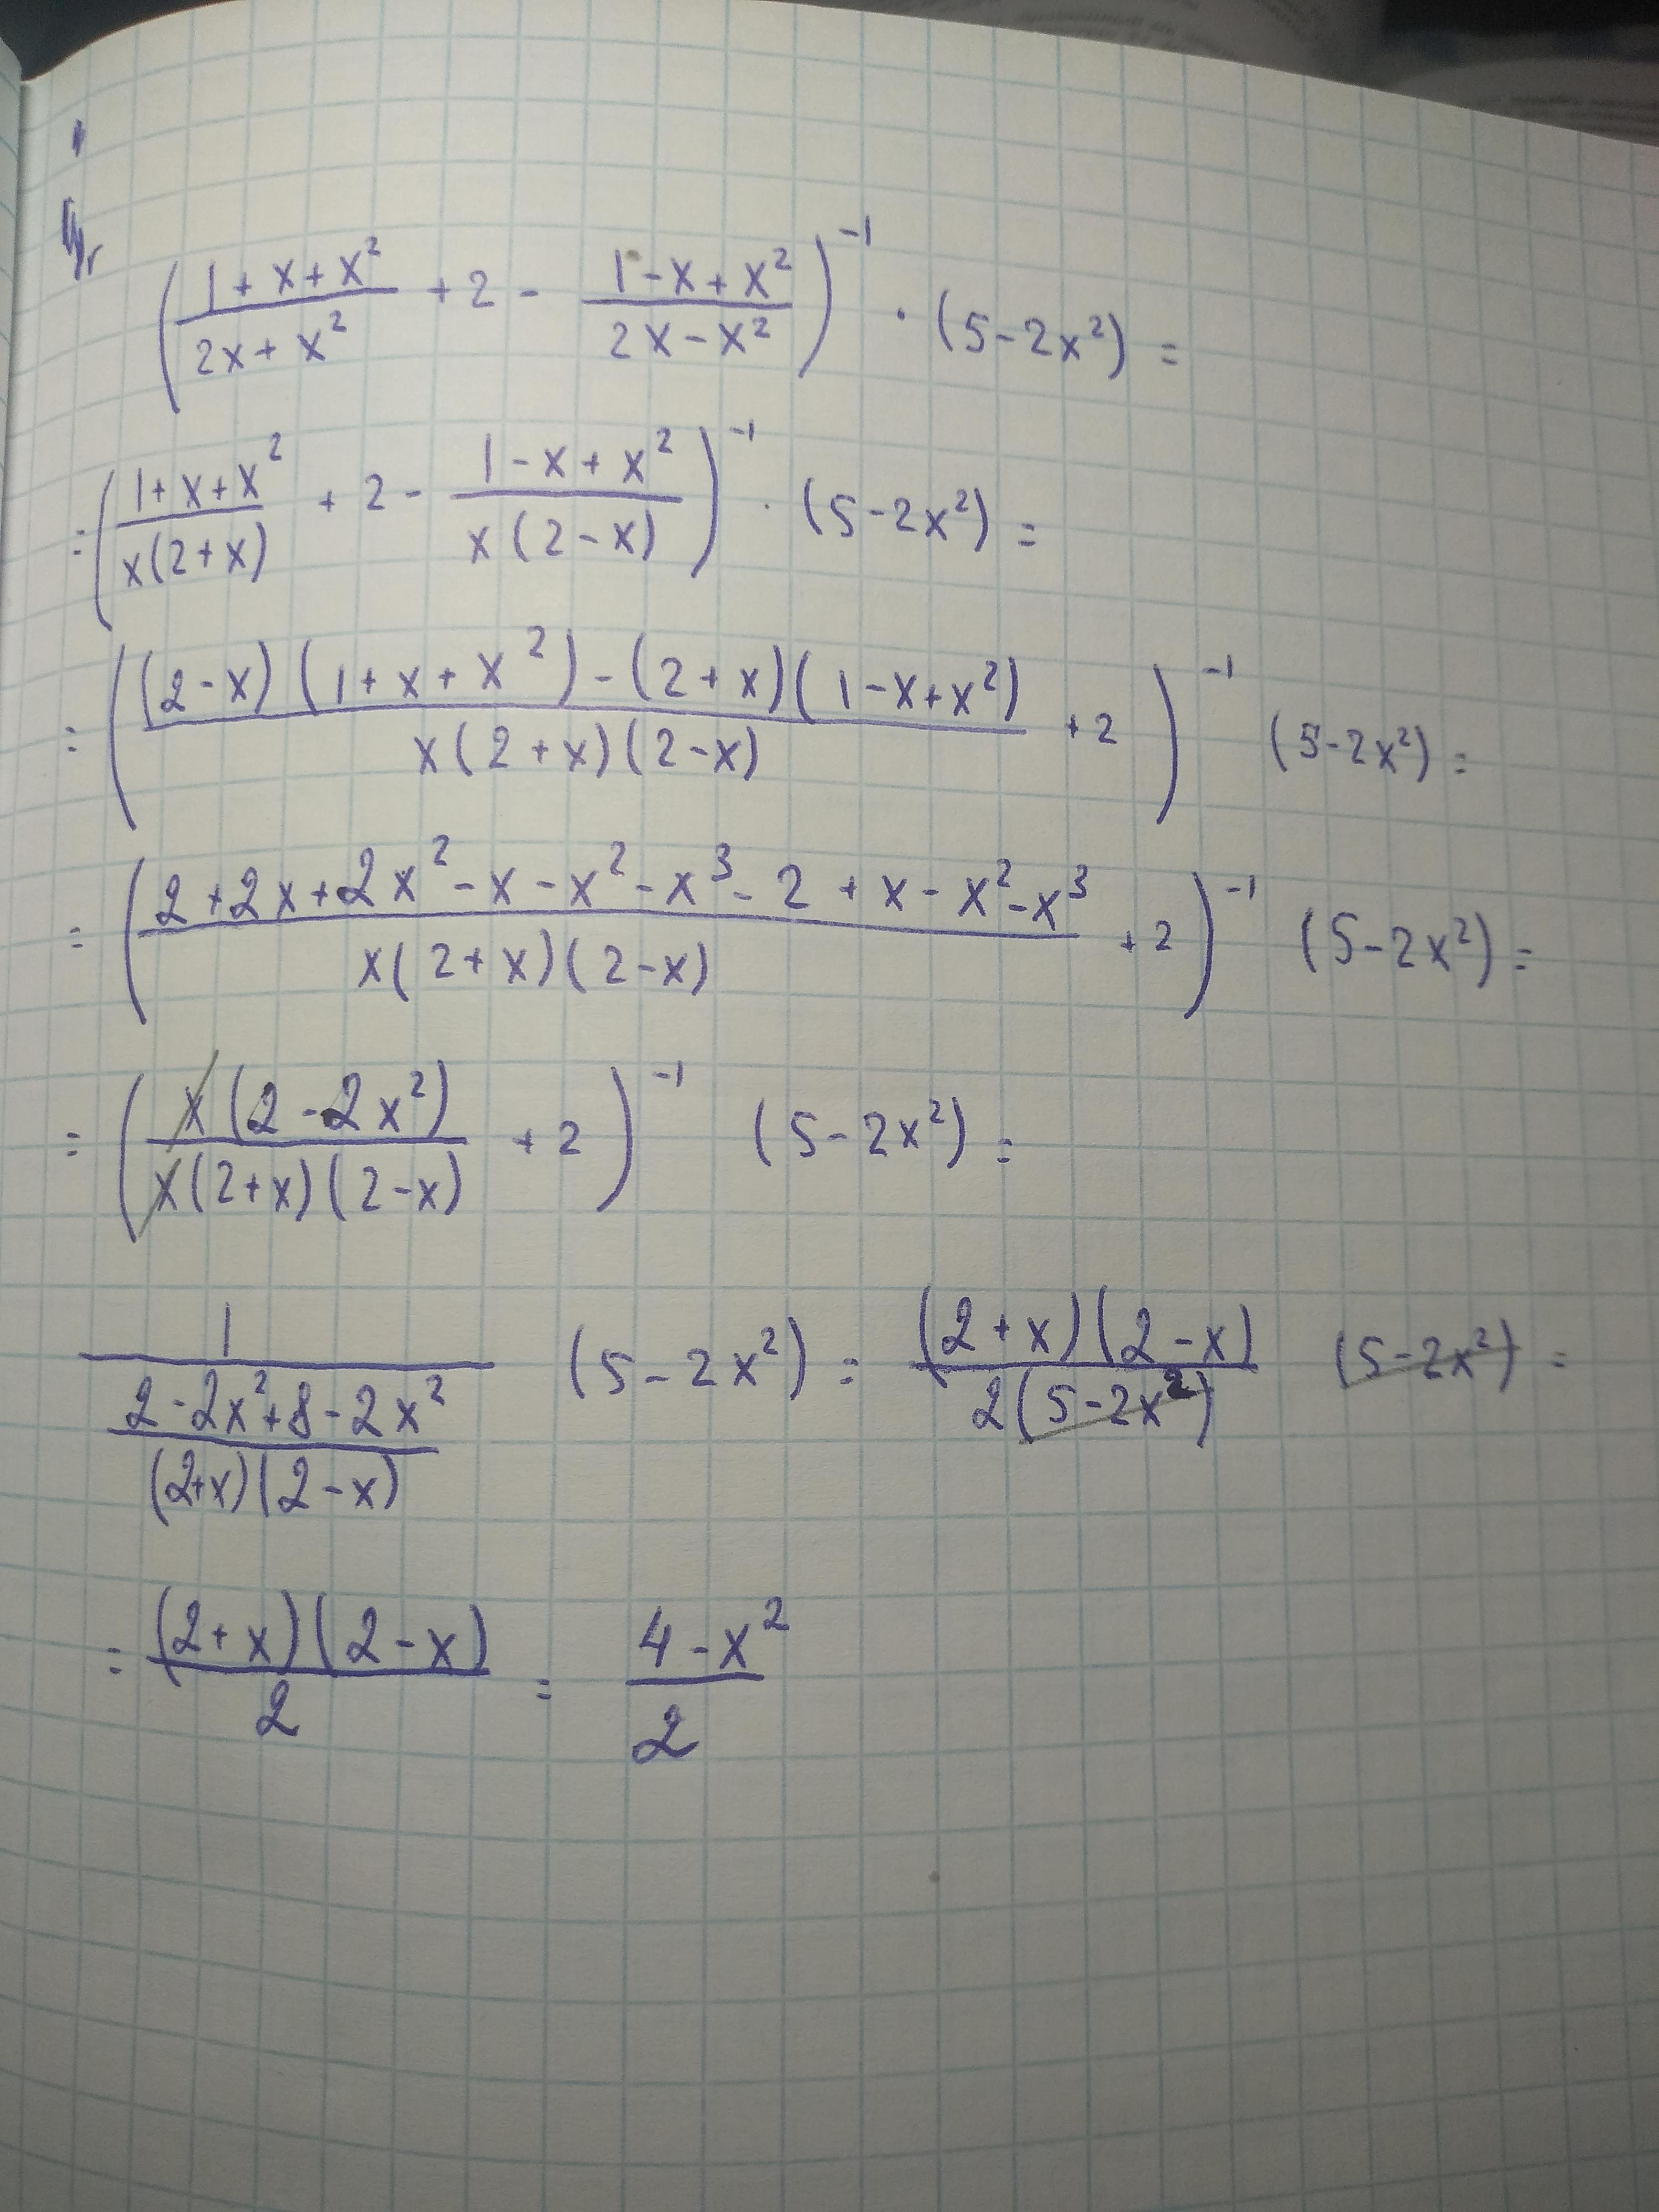 ( (1+x+x²)/(2x+x²) + 2 - (1-x+x²)/(2x-x²) )⁻¹ · (5-2x²) =
= ( (1+x+x²)/(x(2+x)) + 2 - (1-x+x²)/(x(2-x)) )⁻¹ · (5-2x²) =
= ( ((2-x)(1+x+x²)-(2+x)(1-x+x²))/(x(2+x)(2-x)) + 2 )⁻¹ (5-2x²) =
= ( (2+2x+2x²-x-x²-x³-2+x-x²-x³)/(x(2+x)(2-x)) + 2 )⁻¹ (5-2x²) =
= ( (x(2-2x²))/(x(2+x)(2-x)) + 2 )⁻¹ (5-2x²) =
1/((2-2x²+8-2x²)/((2+x)(2-x))) (5-2x²) = ((2+x)(2-x))/(2(5-2x²)) (5-2x²) =
= ((2+x)(2-x))/2 = (4-x²)/2